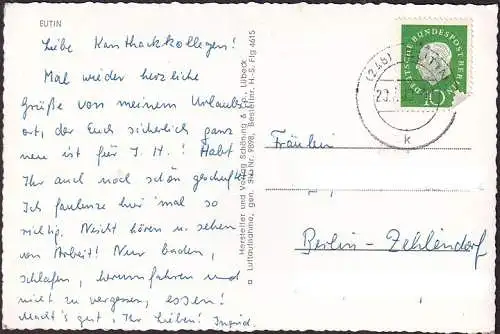 EUTIN
Liebe Kanthackkollegen!
Mal wieder herzliche
Grüße von meinem Urlaubs
ort, der Euch sicherlich ganz
neu ist für I. H.! Habt
Ihr auch noch schön geschuftet
Ich faulenze hier mal so
richtig. Nicht hören u. sehen
von Arbeit! Nur baden,
schlafen, herumfahren und
nicht zu vergessen, essen!
Macht's gut, Ihr Lieben! Ingrid.
Hersteller und Verlag Schöning & Co., Lübeck
Luftaufnahme, gen. SH-Nr. 9898, Bestellnr. H. S. Flg 4615
DEUTSCHE BUNDESPOST BERLIN
10
(24b) EUTIN
20.
k
Fräulein
Berlin-Zehlendorf